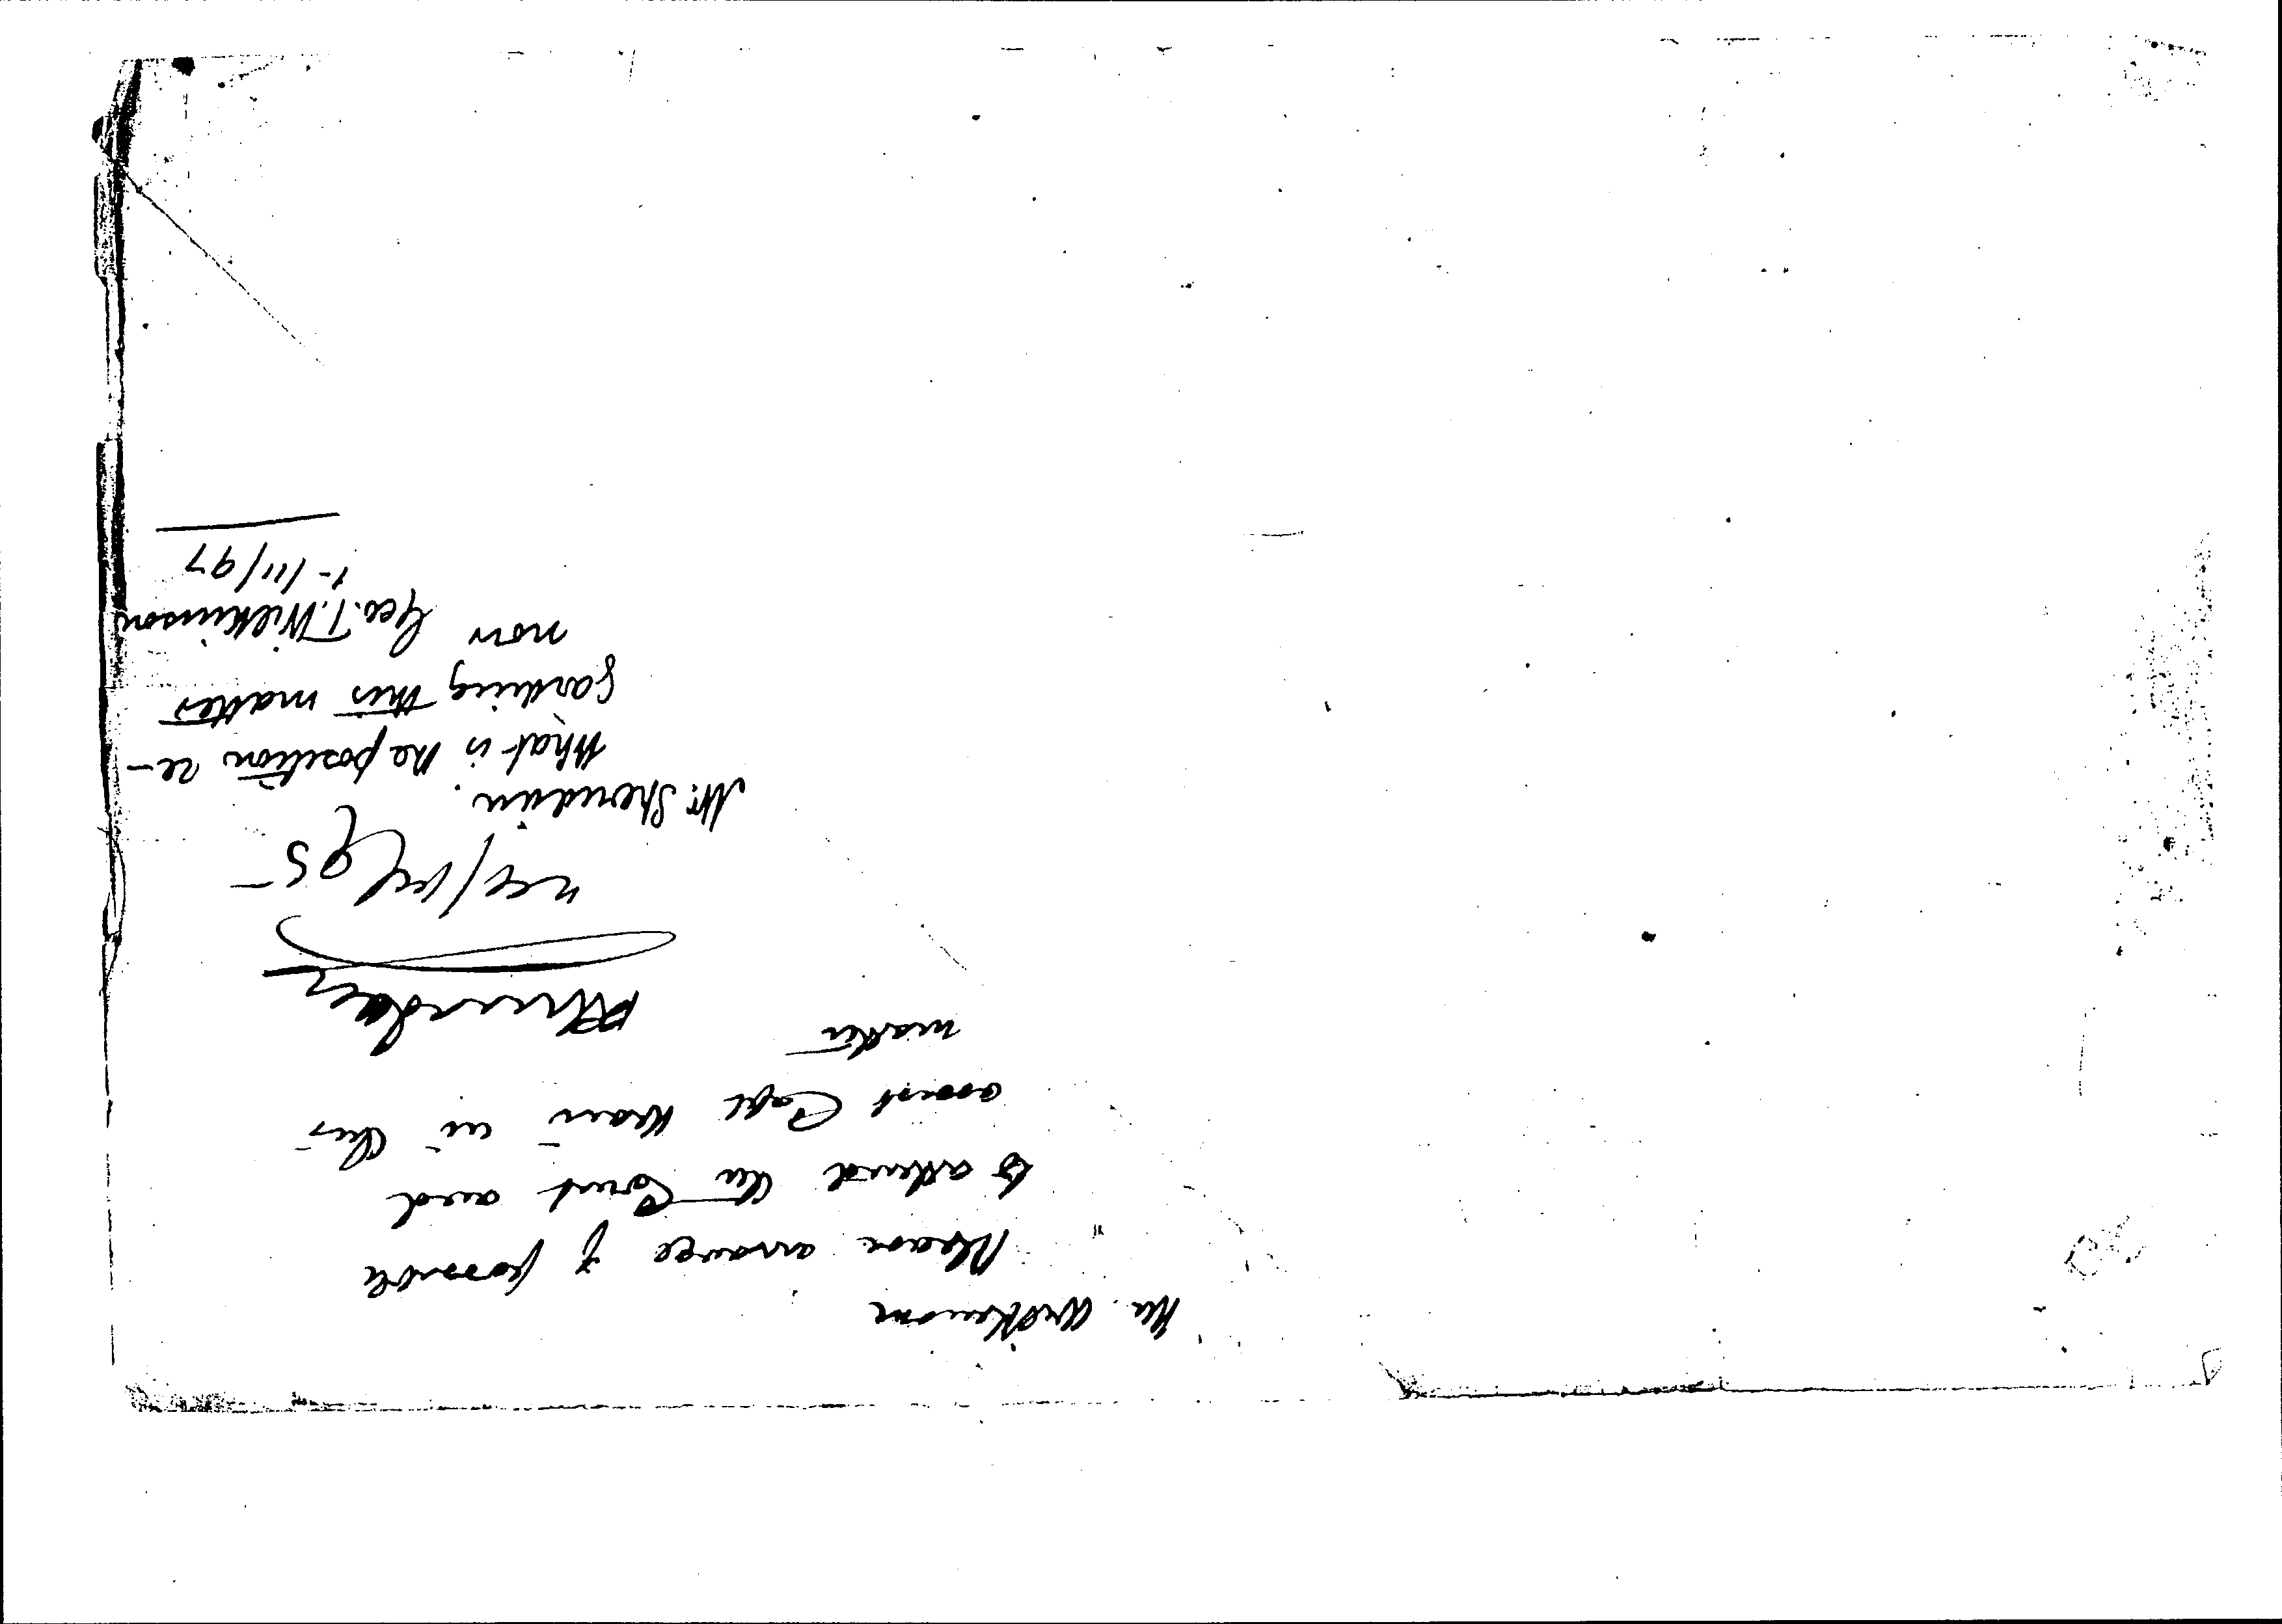 Mr. Wilkinson
Please arrange if possible
to attend the Court and
assist Capt in this
matter
95
Mr. Sheridan.
What is the position re-
garding this matter
now Geo. T. Wilkinson
1-/11/97